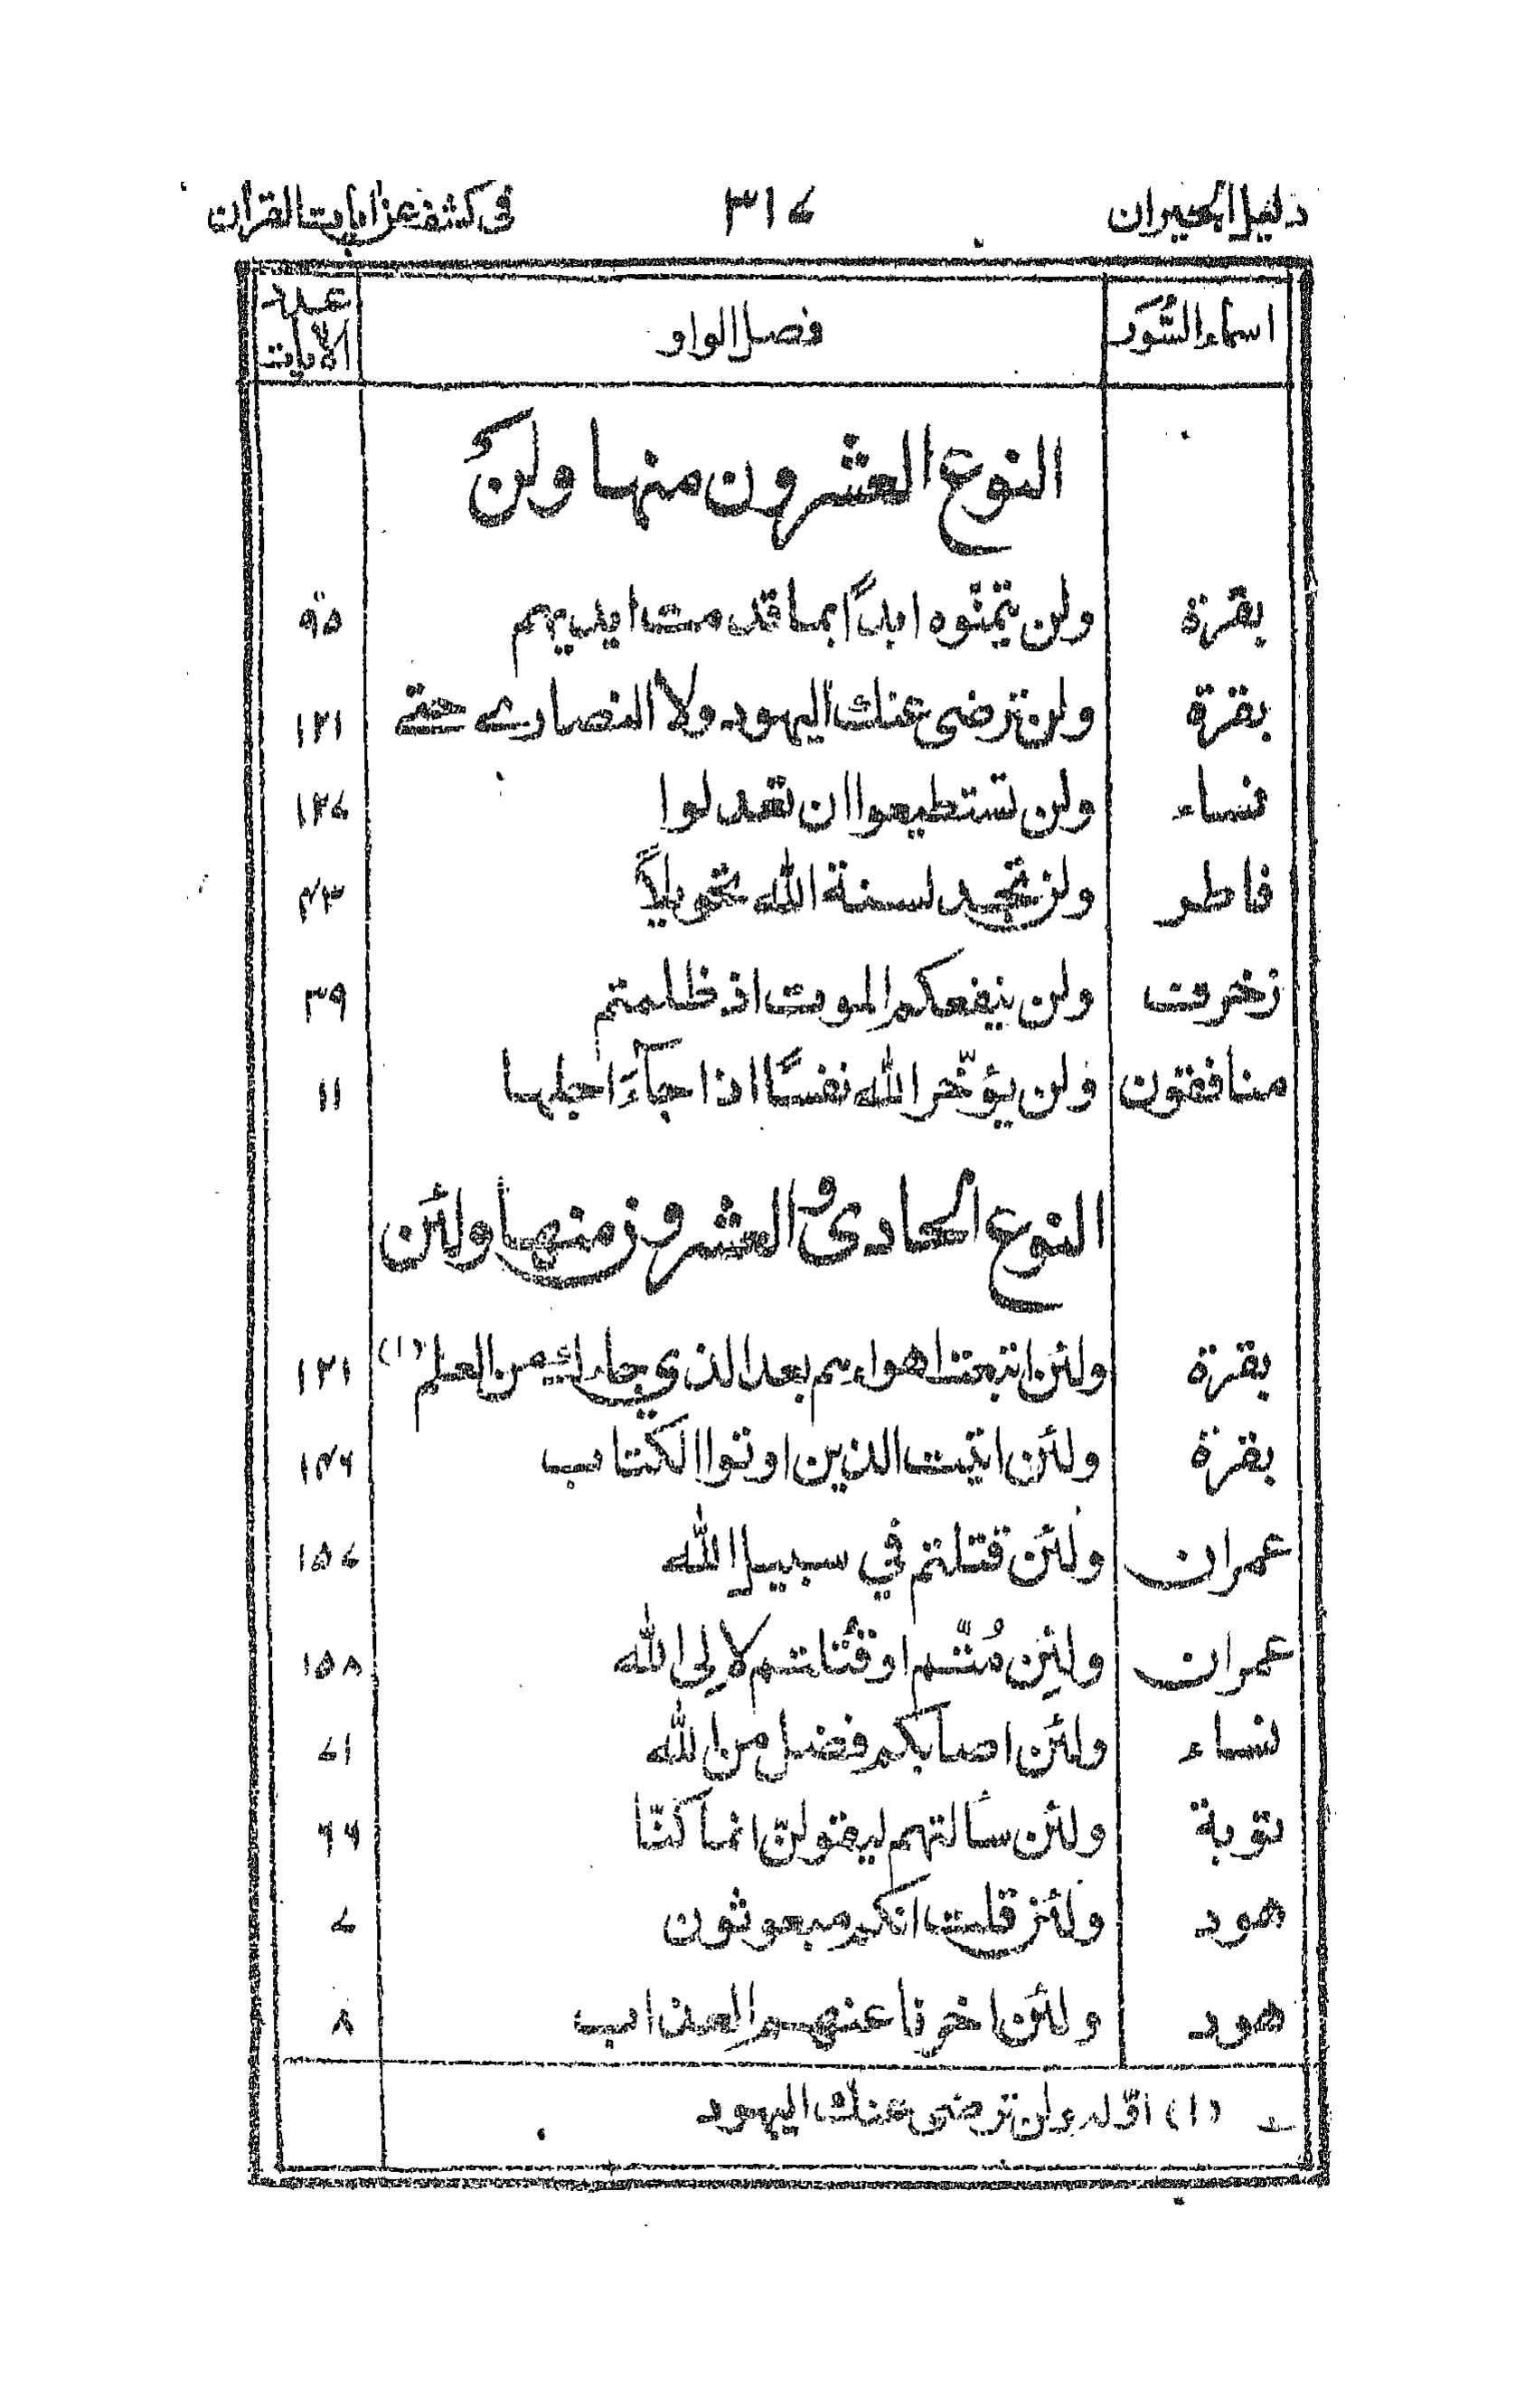 دليل الحيران ٣١٧ في كشف عن ايات القران
اسماء السُّور فصل الواو عدد الآيات
النوع العشرون منها ولن
بقرة ولن يتمنّوه ابدًا بما قدمت ايديهم ٩٥
بقرة ولن ترضى عنك اليهود ولا النصارے حتے ١٢١
نساء ولن تستطيعوا ان تعدلوا ١٢٧
فاطر ولن تجد لسنة الله تحويلاً ٤٣
زخرف ولن ينفعكم الموت اذ ظلمتم ٣٩
منافقون ولن يؤخّر الله نفسًا اذا جآءَ اجلها ١١
النوع الحادي و العشرون منها ولئن
بقرة ولئن اتبعت اهواءهم بعد الذي جاءك من العلم (١) ١٢١
بقرة ولئن اتيت الذين اوتوا الكتاب ١٤٦
عمران ولئن قتلتم في سبيل الله ١٥٧
عمران ولئن مُتّم او قُتلتم لاِلى الله ١٥٨
نساء ولئن اصابكم فضل من الله ٧١
توبة ولئن سألتهم ليقولنّ انما كنّا ٦٦
هود ولئن قلت انكم مبعوثون ٧
هود ولئن اخرنا عنهم العذاب ٨
(١) اوّله ولن ترضى عنك اليهود